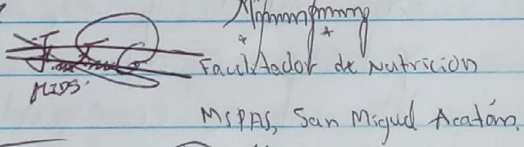 Facilitador de Nutrición
MIDS.
MSPAS, San Miguel Acatán.